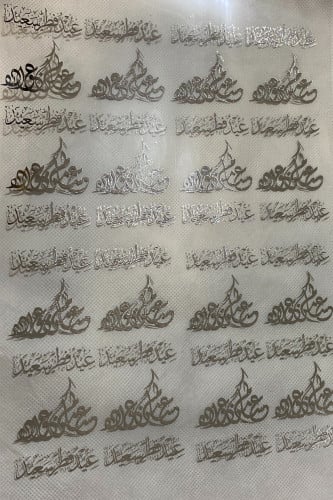 عيد فطر سعيد عيد فطر سعيد عيد فطر سعيد عيد فطر سعيد
عساكم من عواده عساكم من عواده عساكم من عواده عساكم من عواده
عيد فطر سعيد عيد فطر سعيد عيد فطر سعيد عيد فطر سعيد
عساكم من عواده عساكم من عواده عساكم من عواده عساكم من عواده
عيد فطر سعيد عيد فطر سعيد عيد فطر سعيد عيد فطر سعيد
عيد فطر سعيد عيد فطر سعيد عيد فطر سعيد عيد فطر سعيد
عساكم من عواده عساكم من عواده عساكم من عواده عساكم من عواده
عيد فطر سعيد عيد فطر سعيد عيد فطر سعيد عيد فطر سعيد
عساكم من عواده عساكم من عواده عساكم من عواده عساكم من عواده
عيد فطر سعيد عيد فطر سعيد عيد فطر سعيد عيد فطر سعيد